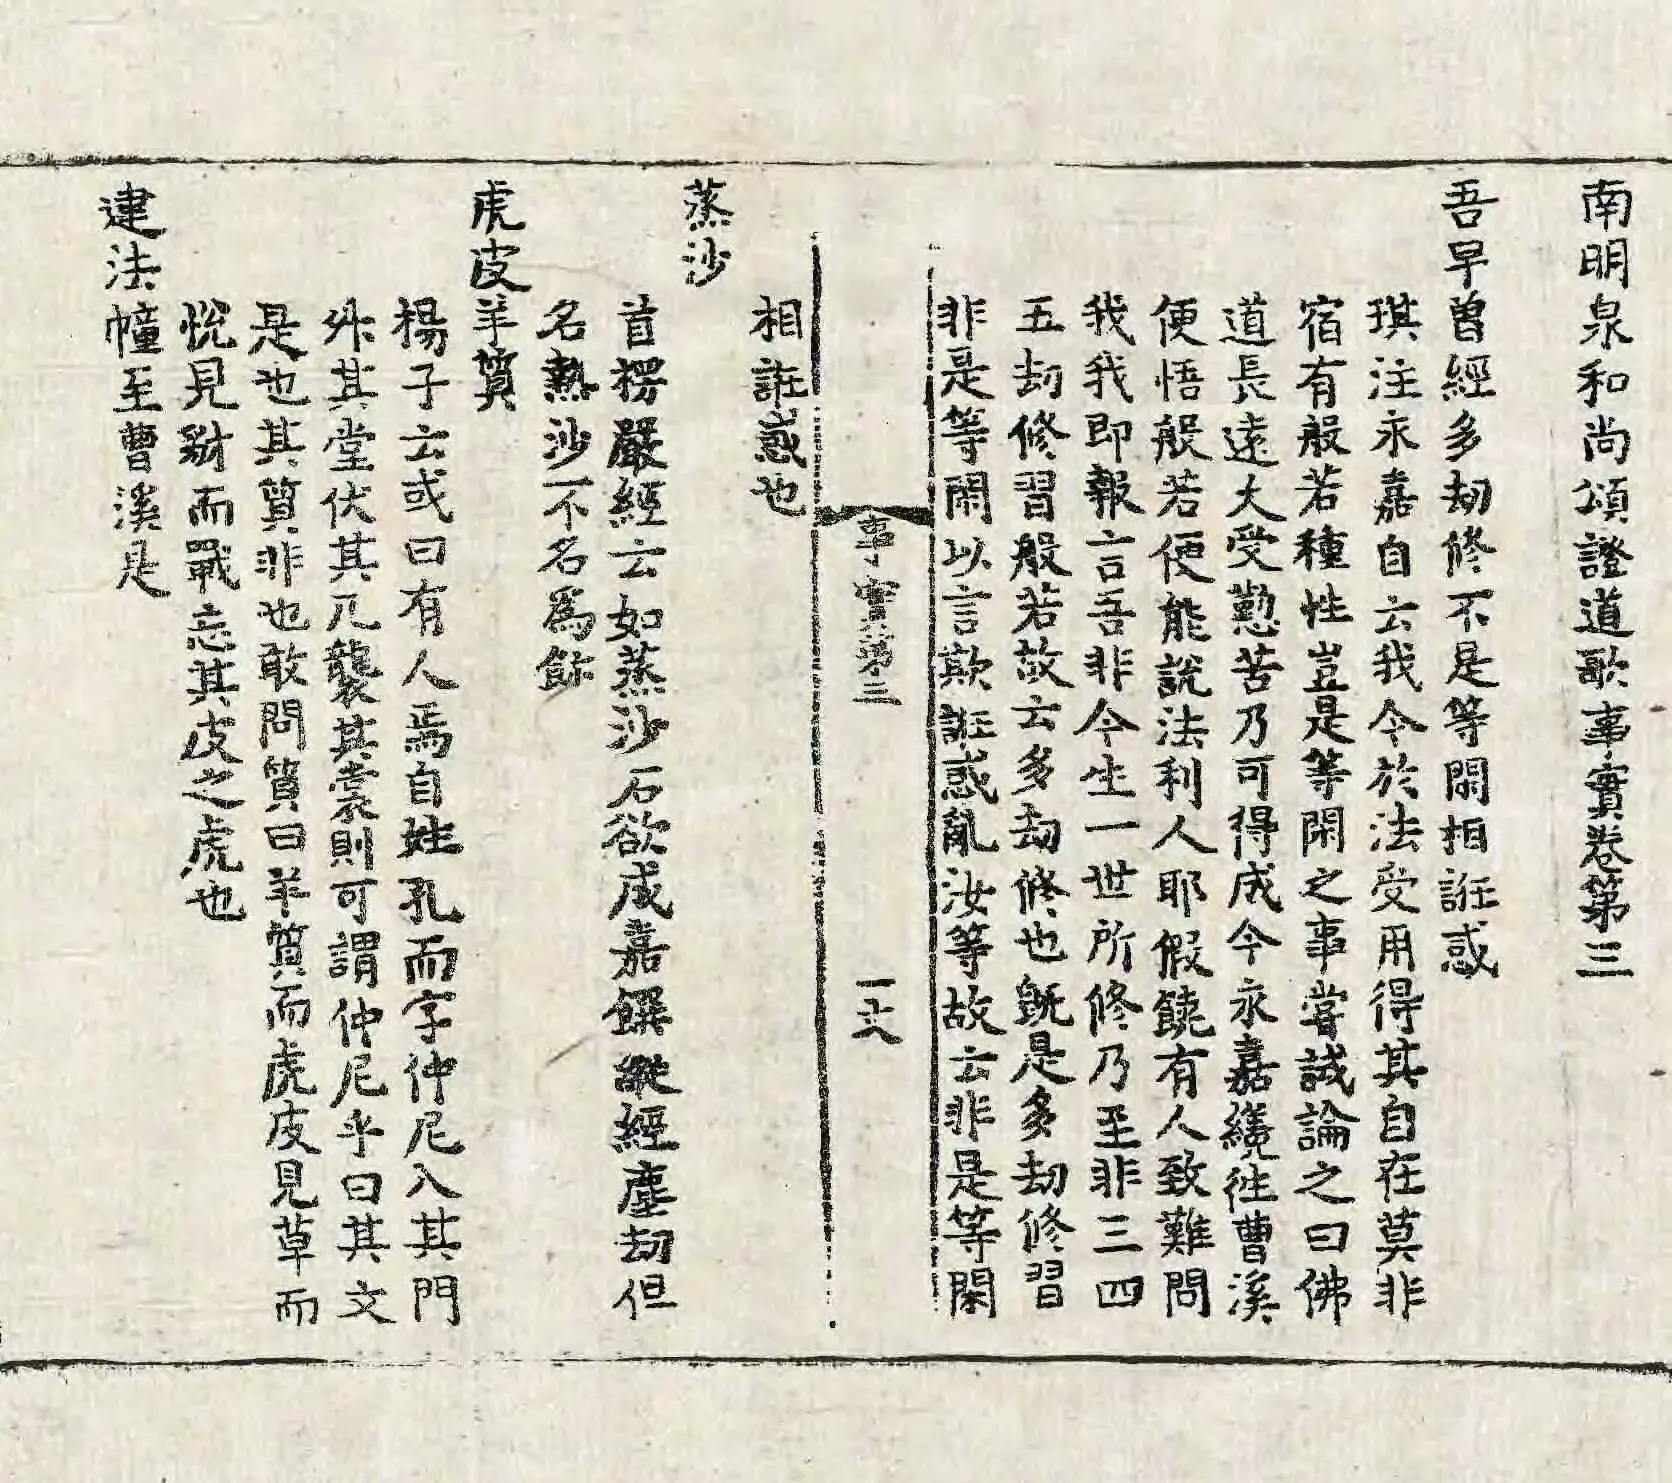 南明泉和尚頌證道歌事實卷第三
吾早曾經多劫修不是等閑相誑惑
琪注永嘉自云我今於法受用得其自在莫非
宿有般若種性豈是等閑之事嘗試論之曰佛
道長遠大受懃苦乃可得成今永嘉纔往曹溪
便悟般若便能說法利人耶假饒有人致難問
我我即報言吾非今生一世所修乃至非三四
五劫修習般若故云多劫修也旣是多劫修習
非是等閑以言欺誑惑亂汝等故云非是等閑
事實第三
相誑惑也
蒸沙
首楞嚴經云如蒸沙石欲成嘉饌縱經塵劫但
名熱沙不名爲飯
虎皮羊質
楊子云或曰有人焉自姓孔而字仲尼入其門
升其堂伏其几襲其裳則可謂仲尼乎曰其文
是也其質非也敢問質曰羊質而虎皮見草而
悅見豺而戰忘其皮之虎也
建法幢至曹溪是